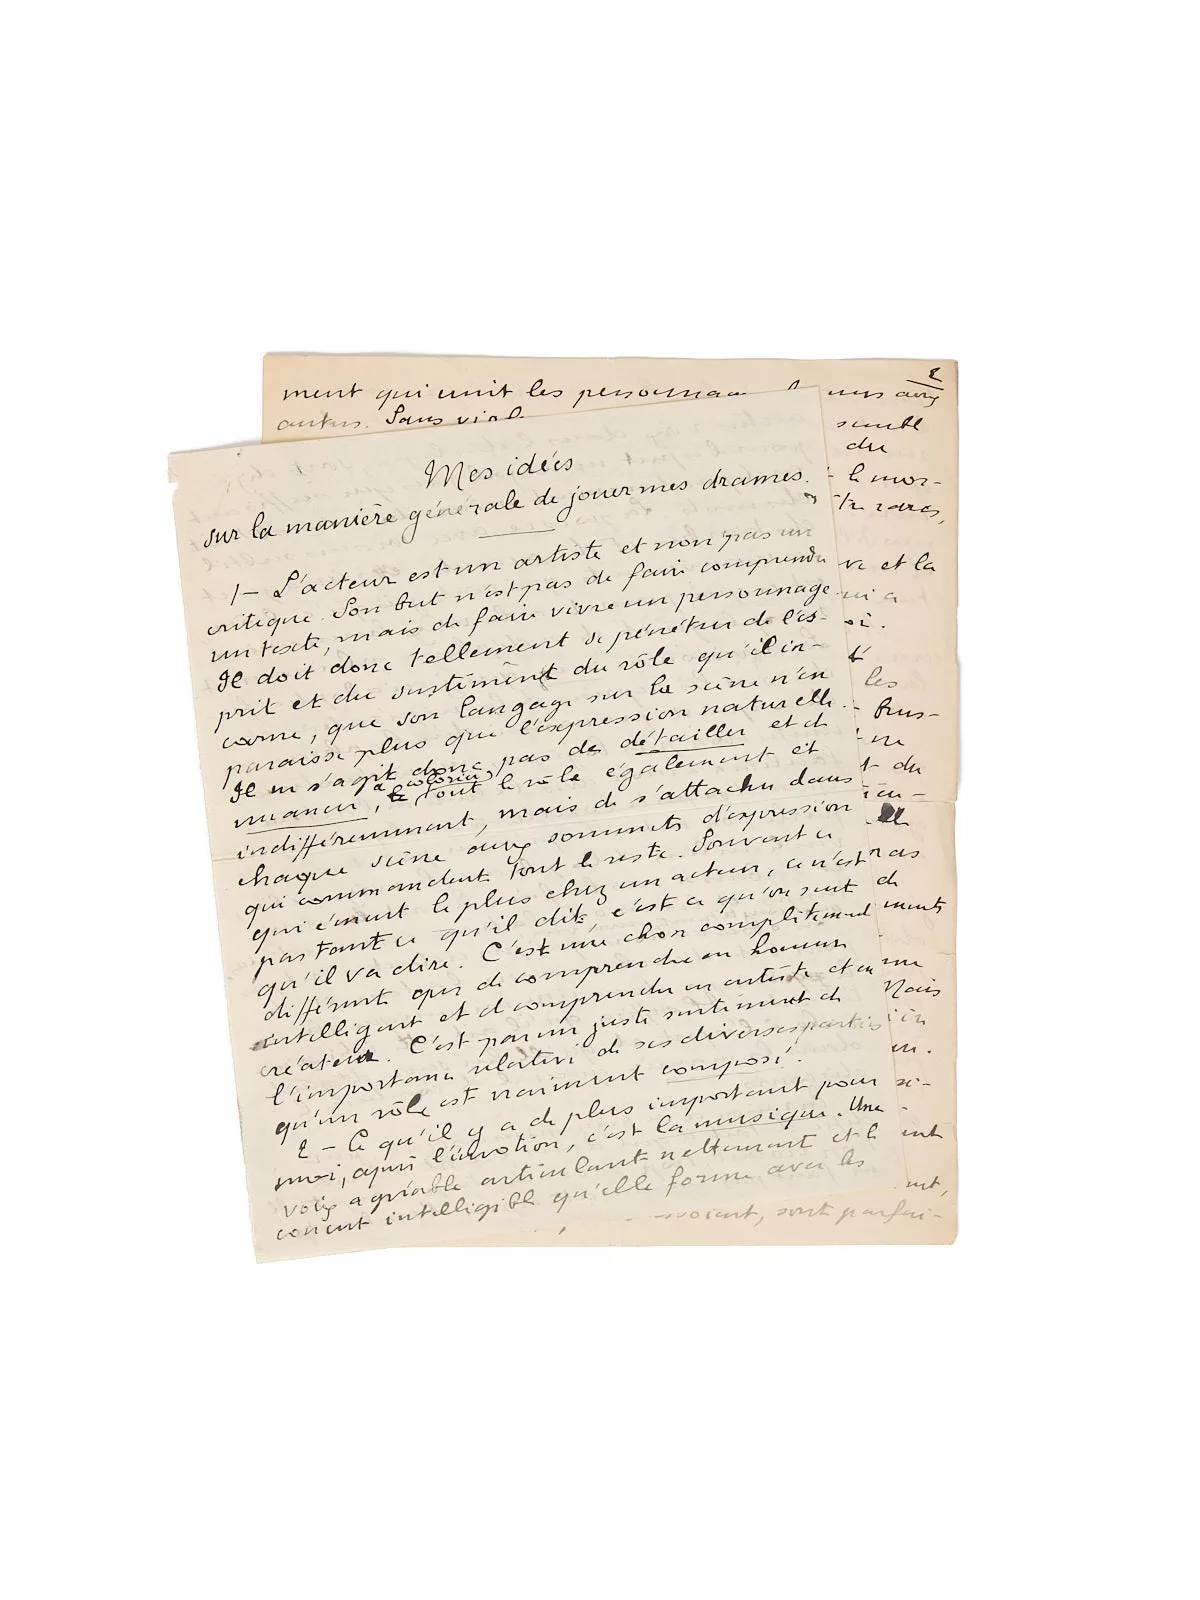 2
ment qui unit les personnag
autres. Sans viol
Mes idées
sur la manière générale de jouer mes drames.
1 – L'acteur est un artiste et non pas un
critique. Son but n'est pas de faire comprendre
un texte, mais de faire vivre un personnage.
Il doit donc tellement se pénétrer de l'es-
prit et du sentiment du rôle qu'il in-
carne, que son langage sur la scène n'en
paraisse plus que l'expression naturelle.
Il ne s'agit donc pas de détailler et de
nuancer, à colorier
tout le rôle également et
indifféremment, mais de s'attacher dans
chaque scène aux sommets d'expression
qui commandent tout le reste. Souvent ce
qui émeut le plus chez un acteur, ce n'est
pas tant ce qu'il dit, c'est ce qu'on sent
qu'il va dire. C'est une chose complètement
différente que de comprendre en homme
intelligent et de comprendre en artiste et en
créateur. C'est par un juste sentiment de
l'importance relative de ses diverses parties
qu'un rôle est vraiment composé.
2 – Ce qu'il y a de plus important pour
moi, après l'émotion, c'est la musique. Une
voix agréable articulant nettement et le
concert intelligible qu'elle forme avec les
semble
du
le mor-
rares,
et la
les
brus-
du
ments
Mais
soient, sont parfai-